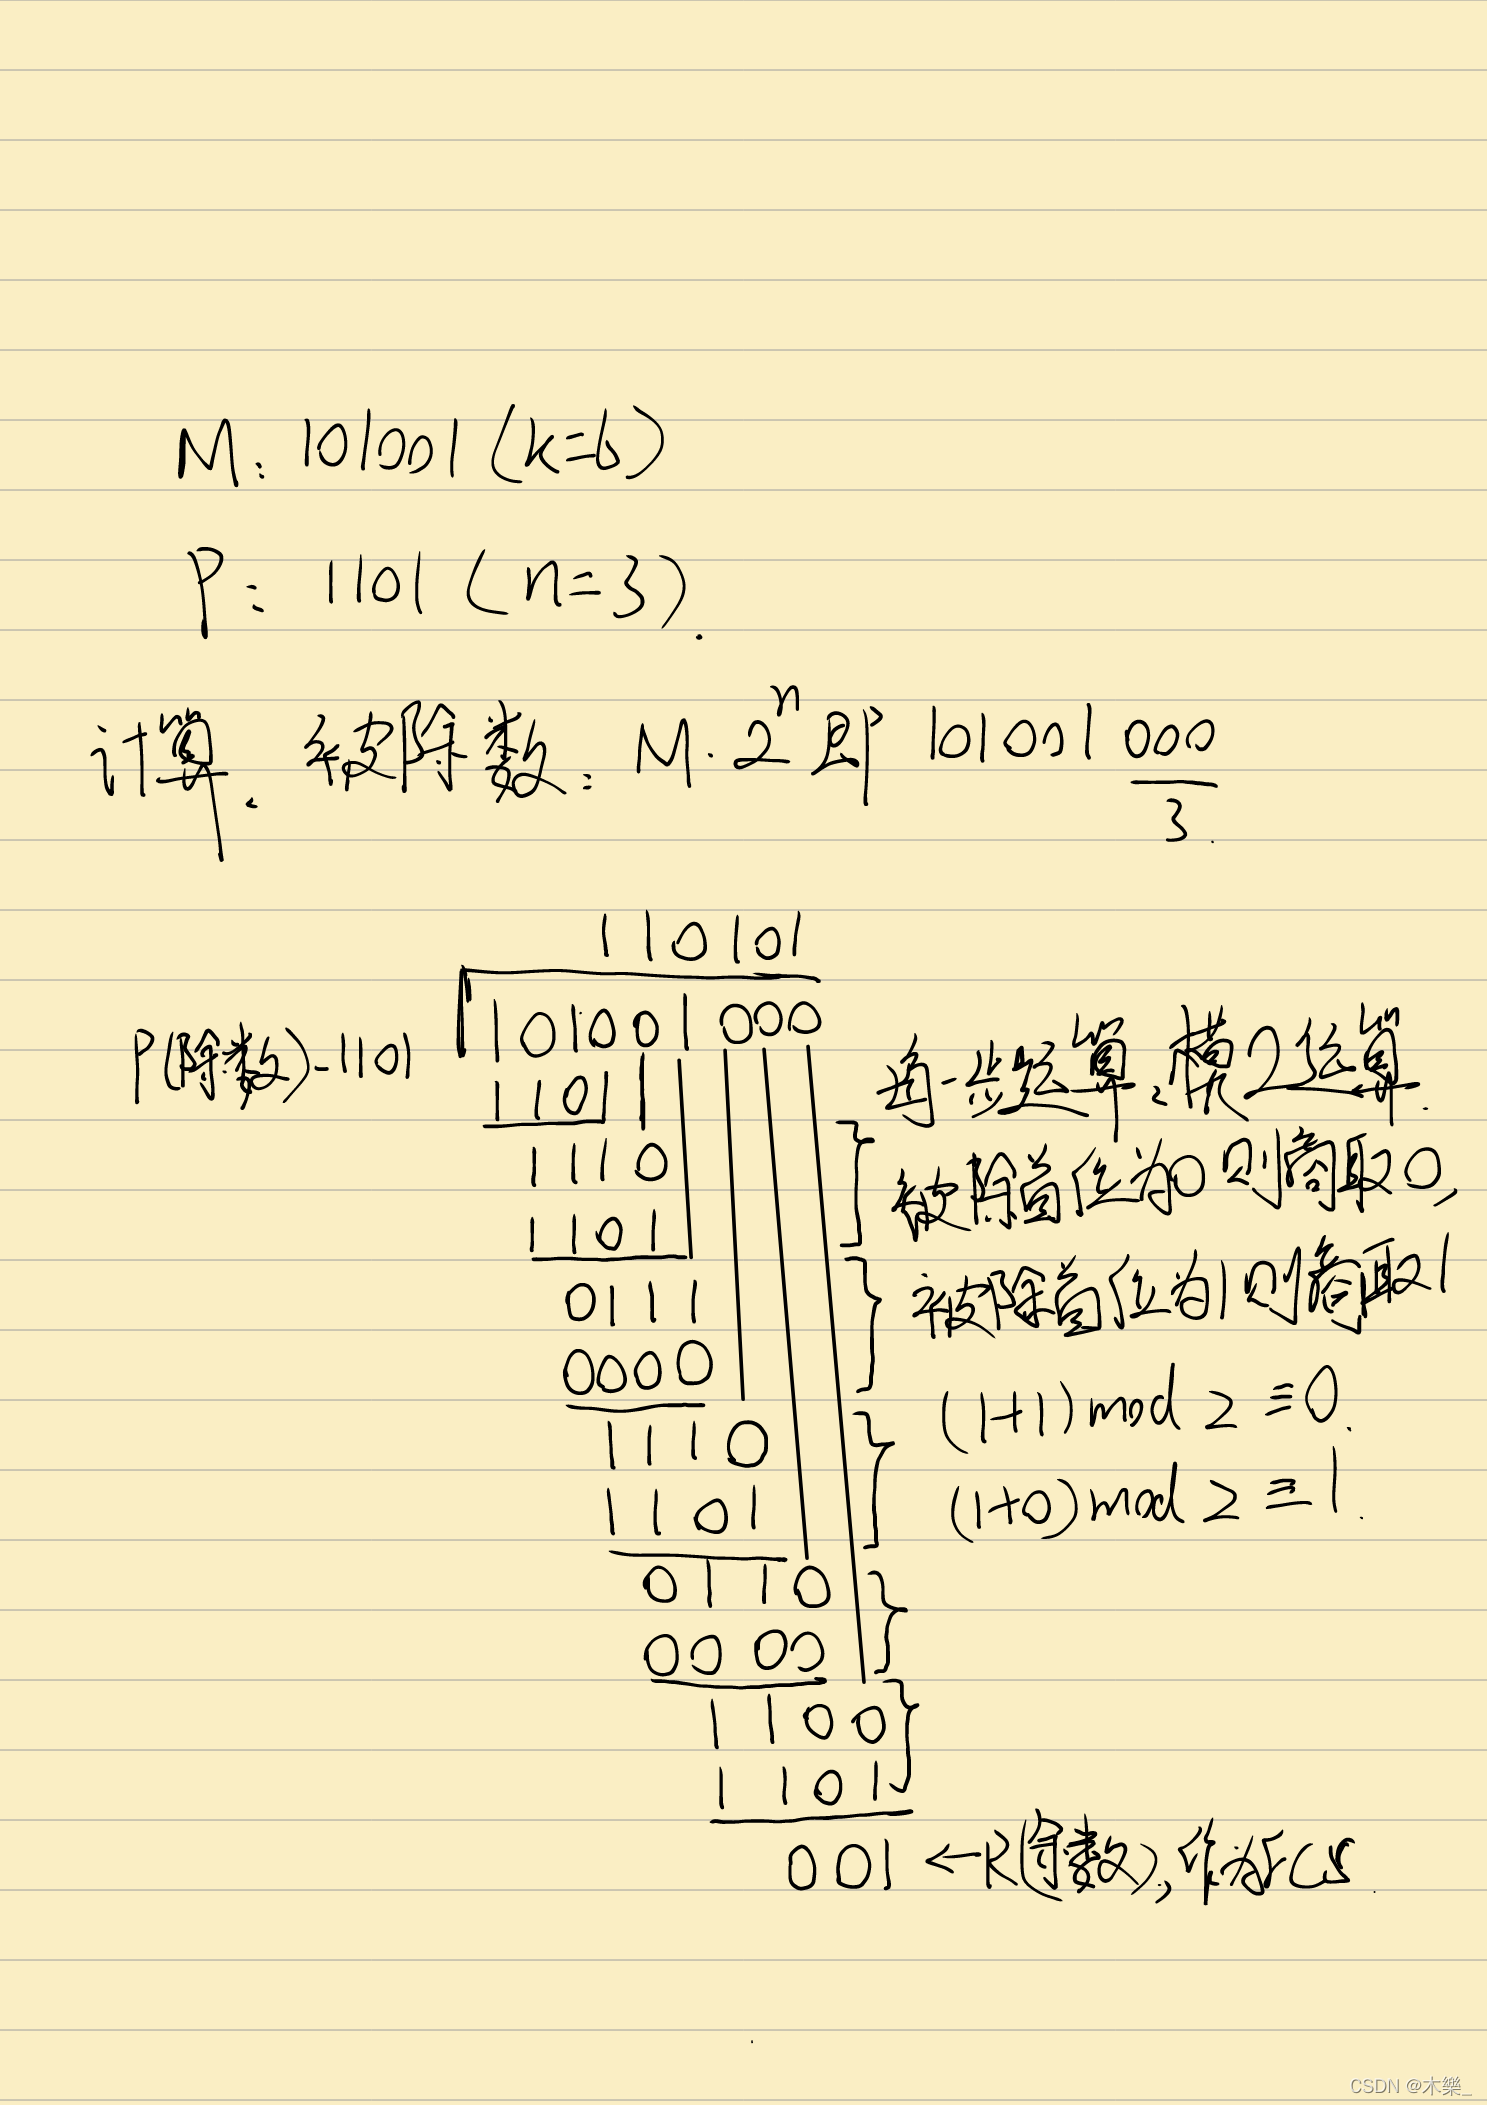 M: 101001 (k=6)
P: 1101 (n=3).
计算. 被除数: M·2ⁿ 即 101001 000
3.
110101
P(除数)-1101 101001000
1101
1110
1101
0111
0000
1110
1101
0110
0000
1100
1101
001 ←R(余数), 作为FCS.
每一步运算、模2运算.
被除首位为0则商取0,
被除首位为1则商取1
(1+1) mod 2 ≡ 0.
(1+0) mod 2 ≡ 1.
CSDN @木樂_